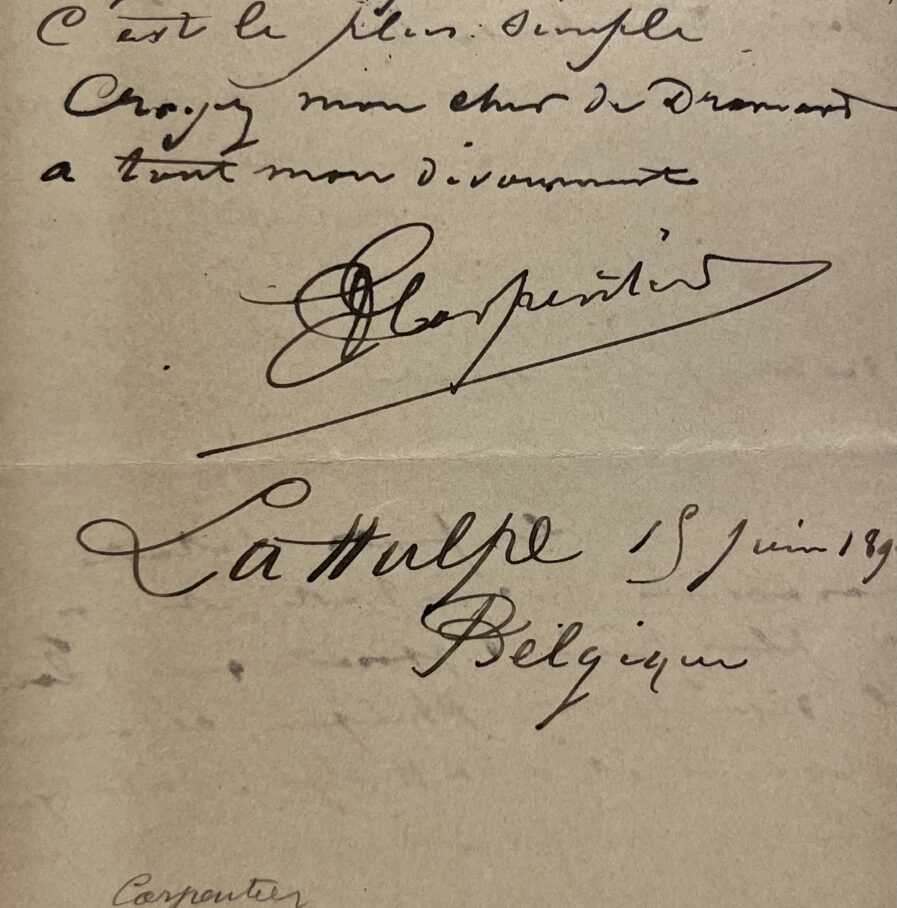 C'est le plus simple
Croyez mon cher de Dramard
a tout mon dévouement
E Carpentier
La Hulpe 15 Juin 189
Belgique
Carpentier